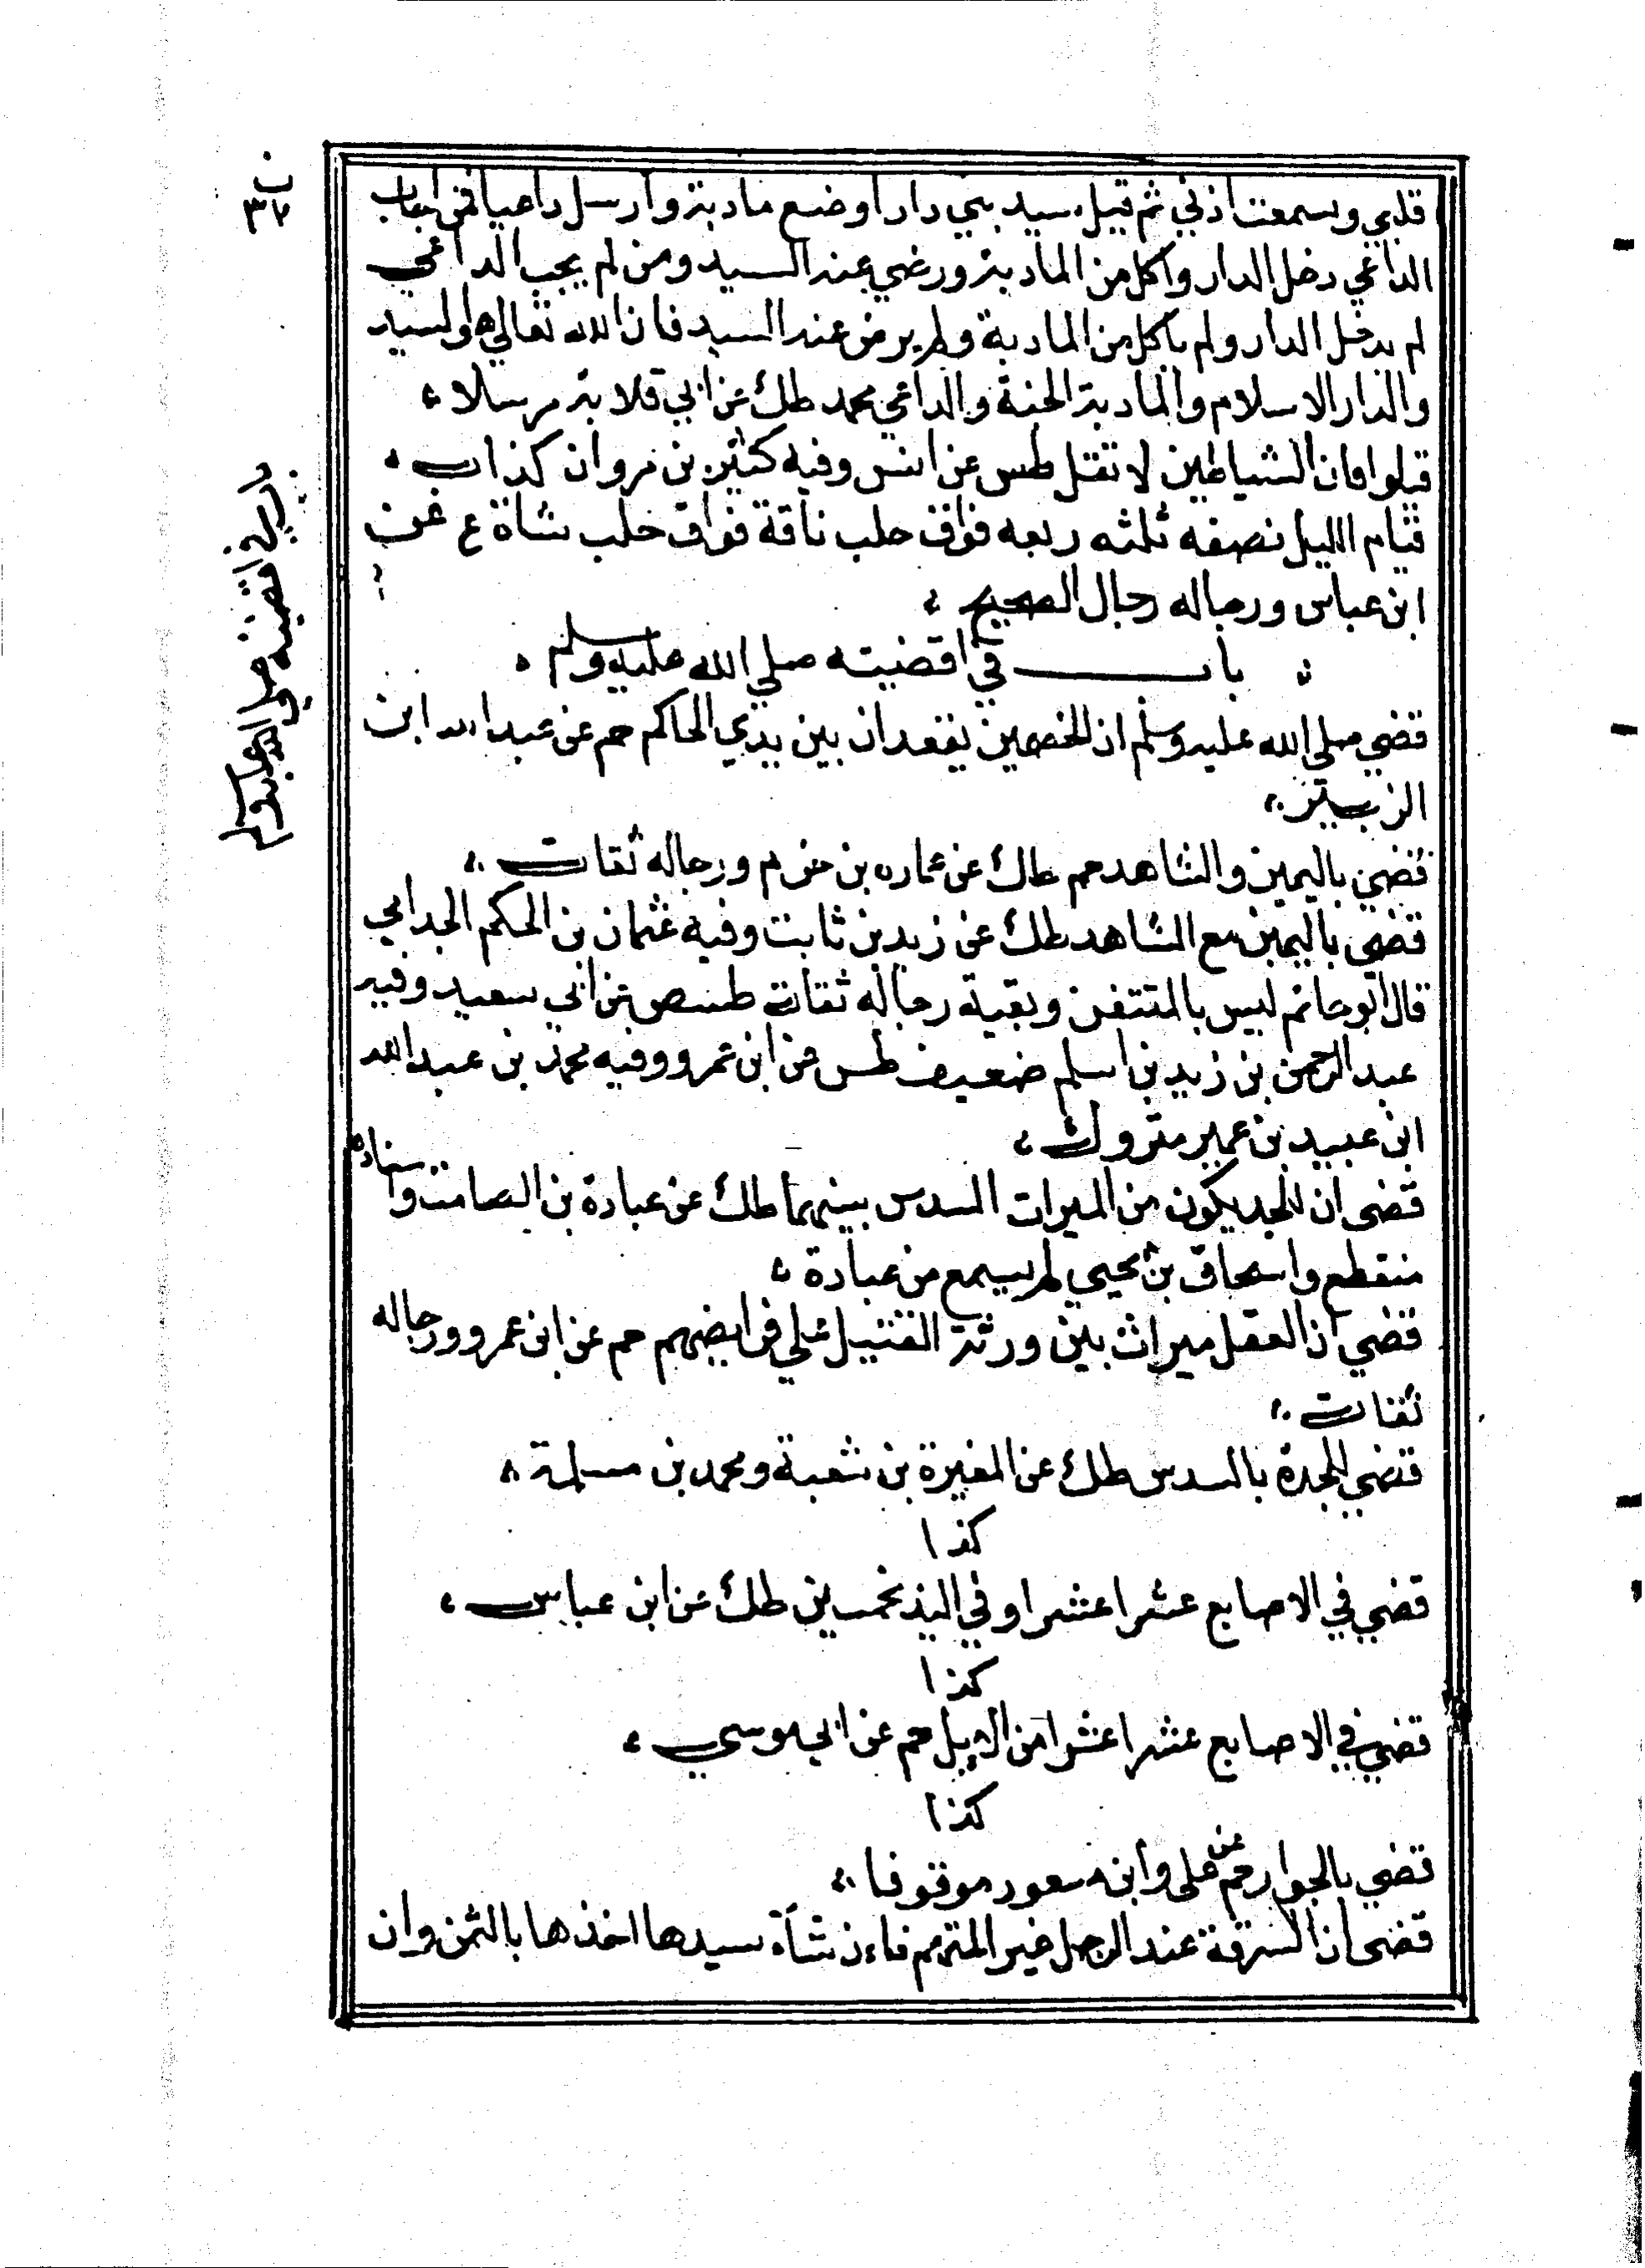 قلبي وسمعت اذني ثم قيل سيد بني دارا وضع مادبة وارسل داعيا فمن اجاب
الداعي دخل الدار واكل من المادبة ورضي عند السيد ومن لم يجب الداعي
لم يدخل الدار ولم ياكل من المادبة ولم يرض عند السيد فان الله تعالي هو السيد
والدار الاسلام والمادبة الجنة والداعي محمد طك عن ابي قلابة مرسلا
قيلوا فان الشياطين لا تقيل طس عن انس وفيه كثير بن مروان كذاب
قيام الليل نصفه ثلثه ربعه فواق حلب ناقة فواق حلب شاة ع عن
ابن عباس ورجاله رجال الصحيح
باب في اقضيته صلي الله عليه وسلم
قضي صلي الله عليه وسلم ان الخصمين يقعدان بين يدي الحاكم حم عن عبد الله ابن
الزبير
قضي باليمين والشاهد حم طك عن عماره بن حزم ورجاله ثقات
قضي باليمين مع الشاهد طك عن زيد بن ثابت وفيه عثمان بن الحكم الجدابي
قال ابو حاتم ليس بالمتقن وبقية رجاله ثقات طسص عن ابي سعيد وفيه
عبد الرحمن بن زيد بن اسلم ضعيف طس عن ابن عمرو وفيه محمد بن عبد الله
ابن عبيد بن عمير متروك
قضى ان للجد يكون من الميرات السدس بينهما طك عن عبادة بن الصامت واسناده
منقطع واسحاق بن يحيي لم يسمع من عبادة
قضي ان العقل ميراث بين ورثة القتيل علي فرايضهم حم عن ابن عمرو ورجاله
ثقات
قضي للجدة بالسدس طك عن المغيرة بن شعبة ومحمد بن مسلمة
كذا
قضي في الاصابع عشرا عشرا وفي اليد بخمسين طك عن ابن عباس
كذا
قضي في الاصابع عشرا عشرا من الابل حم عن ابي موسي
كذا
قضي بالجوار حم عن على وابن مسعود موقوفا
قضى ان السرقة عند الرجل غير المتهم فاءن شآء سيدها اخذها بالثمن وان
باب في اقضيته صلى الله عليه وسلم